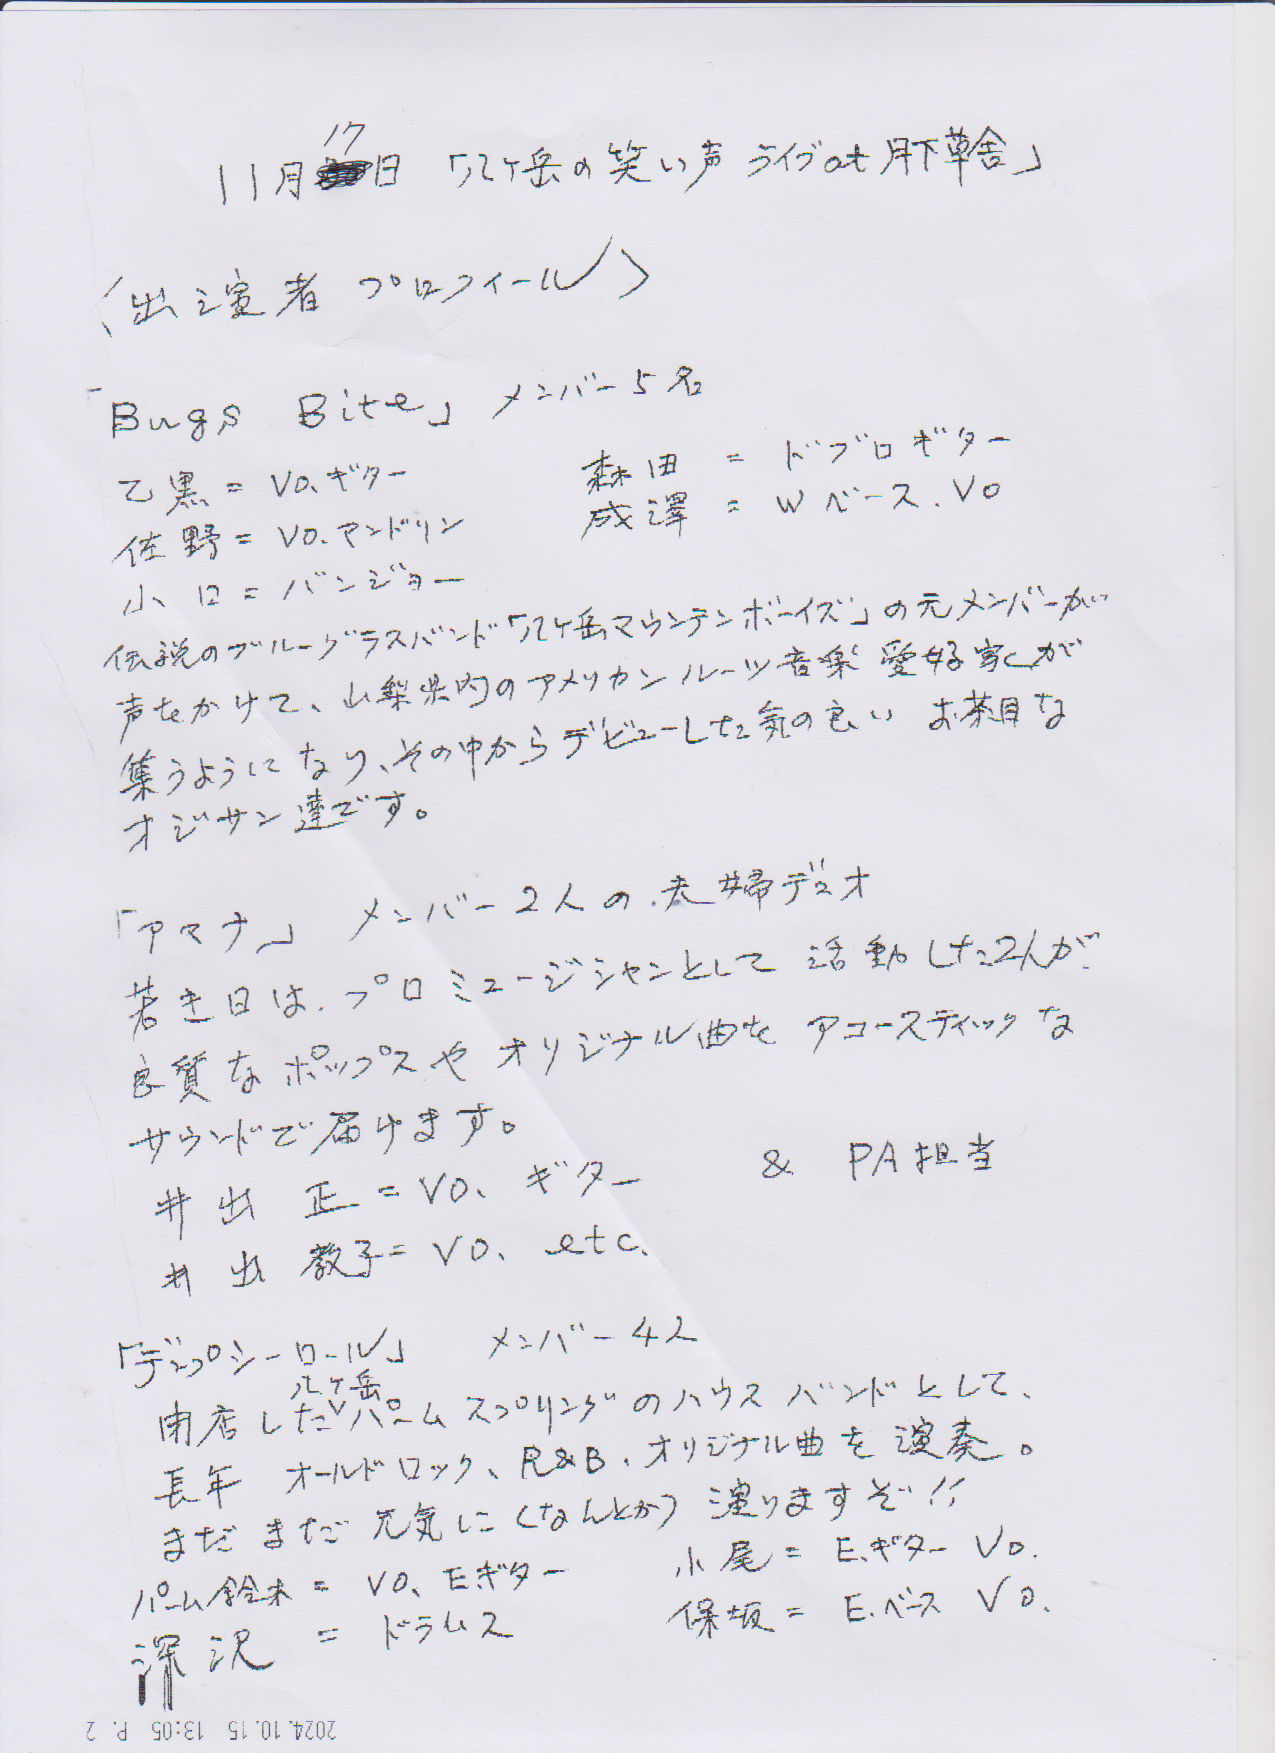 11月17日 「八ヶ岳の笑い声 ライブat 月下草舎」
〈出演者 プロフィール〉
「Bugs Bite」 メンバー5名
乙黒 = VO、ギター 森田 = ドブロギター
佐野 = VO.マンドリン 成澤 = Wベース.VO
小口 = バンジョー
伝説のブルーグラスバンド「八ヶ岳マウンテンボーイズ」の元メンバーが
声をかけて、山梨県内のアメリカンルーツ音楽愛好家が
集うようになり、その中からデビューした気の良い お茶目な
オジサン達です。
「アマナ」 メンバー2人の夫婦デュオ
若き日は、プロミュージシャンとして活動した2人が
良質なポップスやオリジナル曲をアコースティックな
サウンドで届けます。
井出 正 = VO、ギター & PA担当
井出 教子 = VO、etc.
「デンプシーロール」 メンバー4人
閉店した八ヶ岳パームスプリングのハウスバンドとして、
長年 オールドロック、R&B、オリジナル曲を演奏。
まだまだ元気に(なんとか)演りますぞ!!
パーム鈴木 = VO、E.ギター 小尾 = E.ギター VO.
深沢 = ドラムス 保坂 = E.ベース VO.
2024.10.15 13:05 P. 2